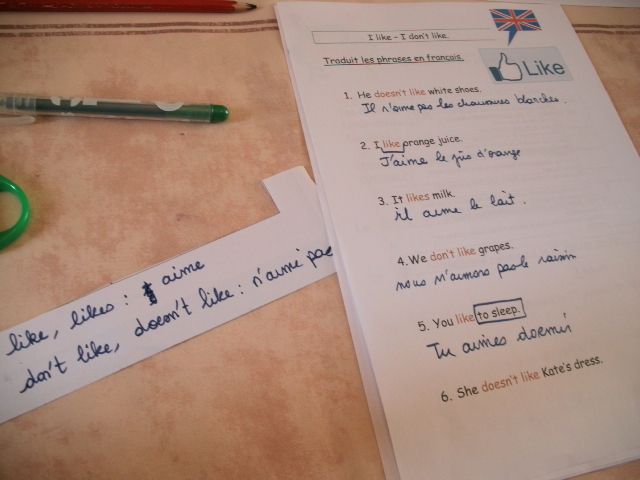 I like - I don't like.
Traduit les phrases en français.
Like
1. He doesn't like white shoes.
Il n'aime pas les chaussures blanches.
2. I like orange juice.
J'aime le jus d'orange
3. It likes milk.
il aime le lait.
4. We don't like grapes.
nous n'aimons pas le raisin
5. You like to sleep.
Tu aimes dormir
6. She doesn't like Kate's dress.
like, likes : aime
don't like, doesn't like : n'aime pas